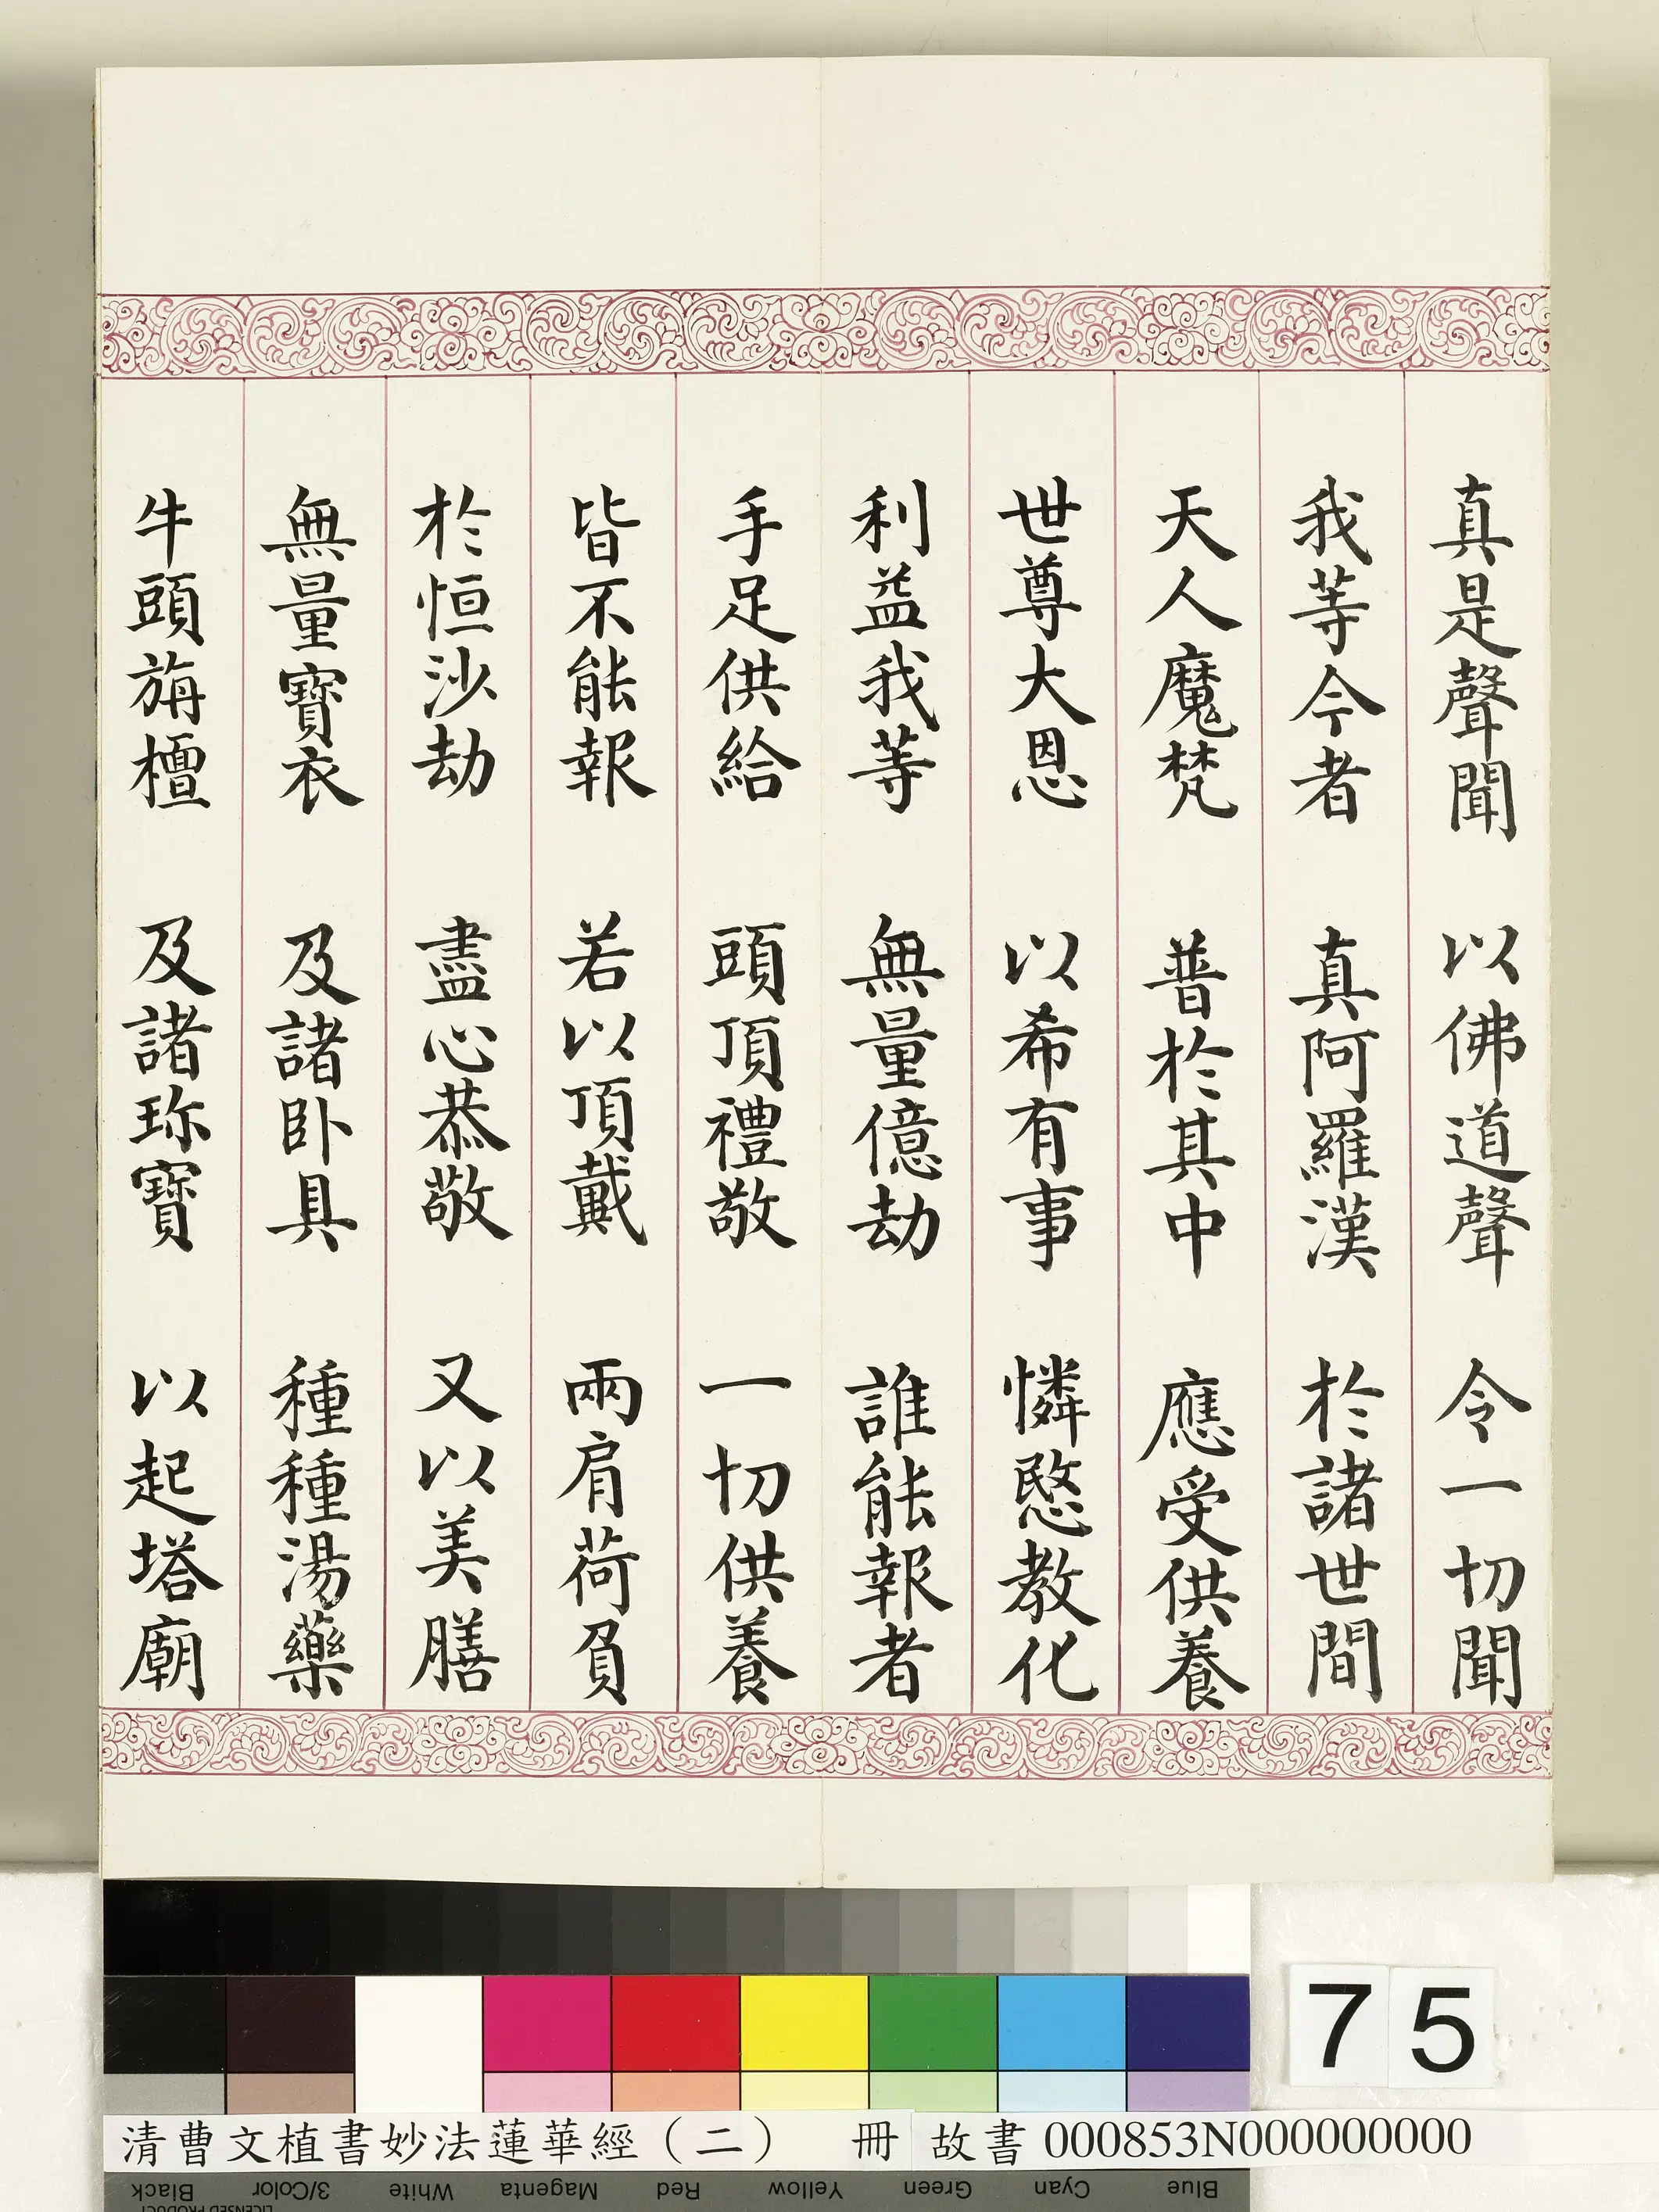 真是聲聞 以佛道聲 令一切聞
我等今者 真阿羅漢 於諸世間
天人魔梵 普於其中 應受供養
世尊大恩 以希有事 憐愍教化
利益我等 無量億劫 誰能報者
手足供給 頭頂禮敬 一切供養
皆不能報 若以頂戴 兩肩荷負
於恒沙劫 盡心恭敬 又以美膳
無量寶衣 及諸卧具 種種湯藥
牛頭旃檀 及諸珎寶 以起塔廟
75
清曹文植書妙法蓮華經（二） 冊 故書 000853N000000000
Black 3/Color White Magenta Red Yellow Green Cyan Blue
LICENSED PRODUCT